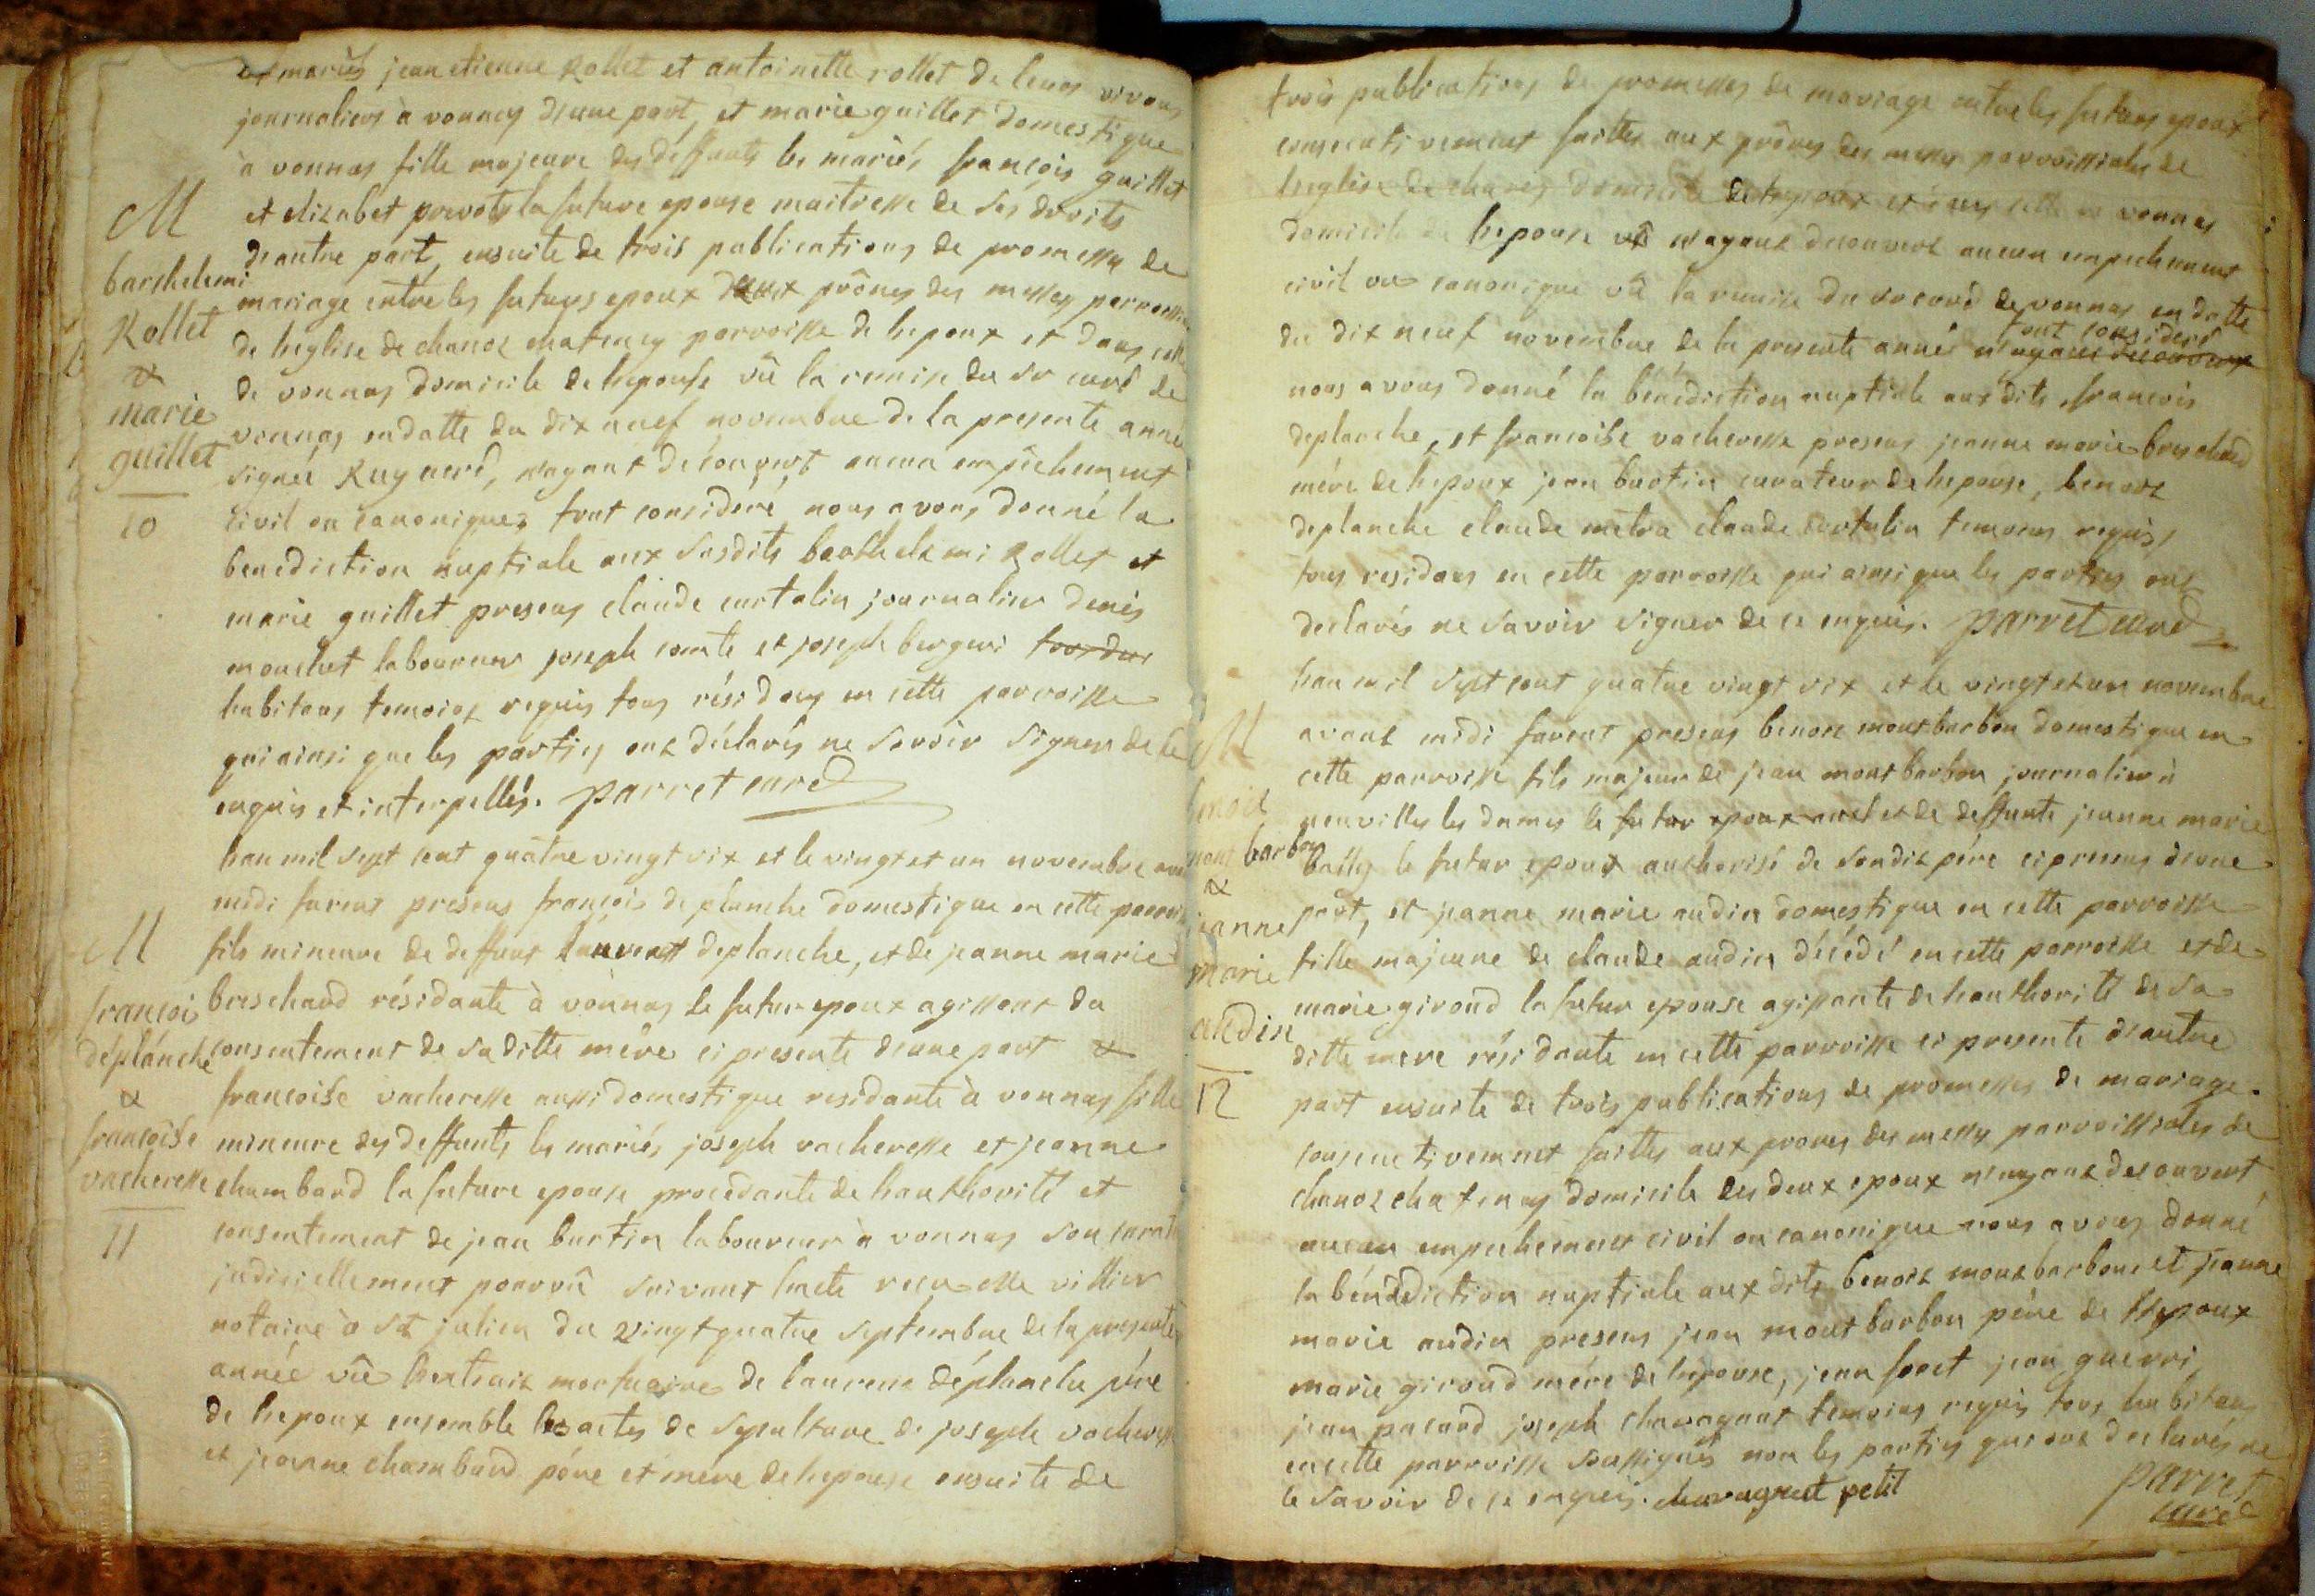 mariés jean etienne Rollet et antoinette rollet de leurs vivans
journaliers à vonnas d'une part, et marie guillet domestique
à vonnas fille majeure des deffunts les mariés françois guillet
et elizabet prevost la future epouse maitresse de ses droits
d'autre part, ensuite de trois publications de promesses de
mariage entre les futurs epoux aux prônes des messes
de l'eglise de chanoz chatenay parroisse de l'epoux et dans celle
de vonnas domicile de l'epouse vû la remise du sr curé de
vonnas en datte du dix neuf novembre de la presente année
signée curé, n'ayant découvert aucun empêchement
civil ou canonique, tout consideré nous avons donné la
benediction nuptiale aux susdits barthelemi Rollet et
marie guillet presens claude curtalin journalier denis
mouchet laboureur joseph comte et joseph
habitans temoins requis tous résidans en cette parroisse
qui ainsi que les parties ont déclarés ne savoir signer de ce
enquis et interpellés. parret curé
M
barthelemi
Rollet
&
marie
guillet
10
l'an mil sept cent quatre vingt six et le vingt et un novembre avant
midi furent presens françois deplanche domestique en cette parroisse
fils mineure de deffunt laurent deplanche, et de jeanne marie
breschaud résidante à vonnas le futur epoux agissant du
consentement de sa ditte mère ci presente d'une part &
françoise vacheresse aussi domestique residante à vonnas fille
mineure des deffunts les mariés joseph vacheresse et jeanne
chambard la future epouse procedante de l'authorité et
consentement de jean burtin laboureur à vonnas son
judiciellement pourvû suivant l'acte villier
notaire à st julien du vingt quatre septembre de la presente
année vû l'extrait mortuaire de laurent déplanche père
de l'epoux ensemble les actes de sepulture de joseph vacheresse
et jeanne chambard père et mère de l'epouse ensuite de
M
françois
déplanche
&
françoise
vacheresse
11
trois publications de promesses de mariage entre les futurs epoux
consecutivement faittes aux prônes des messes parroissiales de
l'eglise de domicile de l'epoux et celle de vonnas
domicile de l'epouse n'ayant decouvert aucun empechement
civil ou canonique vû la remise du sr curé de vonnas en datte
du dix neuf novembre de la presente année n'ayant decouvert tout consideré
nous avons donné la bénédiction nuptiale aux dits françois
deplanche, et françoise vacheresse presens jeanne marie breschaud
mère de l'epoux jean burtin curateur de l'epouse, benoit
deplanche claude metra claude curtalin temoins requis,
tous residans en cette parroisse qui ainsi que les parties ont
declarés ne savoir signer de ce enquis. parret curé
l'an mil sept cent quatre vingt six et le vingt et un novembre
avant midi furent presens benoit montbarbon domestique en
cette parroisse fils majeur de jean montbarbon journalier à
neuvilles les dames le futur epoux et de deffunte jeanne marie
bailly le futur epoux authorisé de sondit père ci presens d'une
part, et jeanne marie audin domestique en cette parroisse
fille majeure de claude audin décédé en cette parroisse et de
marie giroud la futur epouse agissante de l'authorité de sa
ditte mere résidante en cette parroisse ci presente d'autre
part ensuite de trois publications de promesses de mariage
consecutivement faittes aux prones des messes parroissiales de
chanoz chatenay domicile des deux epoux n'ayant decouvert
aucun empechement civil ou canonique nous avons donné
la bénédiction nuptiale aux dits benoit montbarbon et jeanne
marie audin presens jean montbarbon père de l'epoux
marie giroud mère de l'epouse, jean jean guerri,
jean pacaud joseph chavagnat temoins requis tous habitans
en cette parroisse soussignés non les parties qui ont declarés ne
le savoir de ce enquis. chavagnat petit
parret
curé
M
benoit
montbarbon
&
jeanne
marie
audin
12